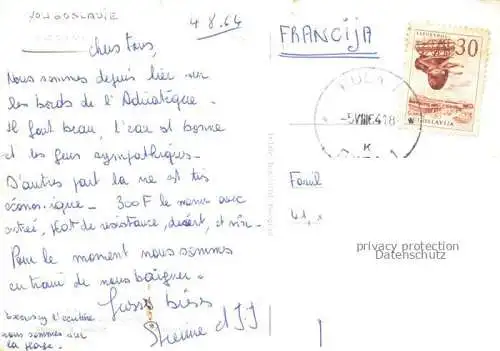 YOUGOSLAVIE
4 8.64
FRANCIJA
Chers tous,
Nous sommes depuis hier sur
les bords de l'Adriatique.
Il fait beau, l'eau est bonne
et les gens sympathiques.
D'autres part la vie est très
économique - 300F le menu avec
entrée, plat de resistance, desert, et vin.
Pour le moment nous sommes
en train de nous baigner.
Excusez l'ecriture
nous sommes sur
la plage.
et J.J
30
JUGOSLAVIJA
PULA 1
-5VIII6418
K
Famil
privacy protection
Datenschutz